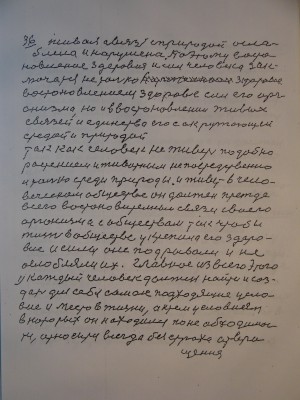 36 живая связь с природой осла-
блена и нарушена. Поэтому восно-
новление здоровия и сил человека зак-
лючает не только здоровие
востоновлением здоровие сил его орг-
онизма но и в востоновлении живых
связей и единство его с окружающей
средой и природой
Так как человек не живет подобно
растением и животным непосредственно
и только среди природы, и живет в чело-
веческом обществе он должен прежде
всего востоновить связи своего
организма с обществом так чтобы
жить в обществе укрепляя его здоро-
вие и силы а не подрывали и не
ослобляли их. Главное из всего этого
у каждый человек должен найти и соз-
дать для себя самое подходящие усло-
вие и место в жизни, а к тем условием
в которых он находится по не обходимос-
ти, относится всегда без страха и отвра-
щения